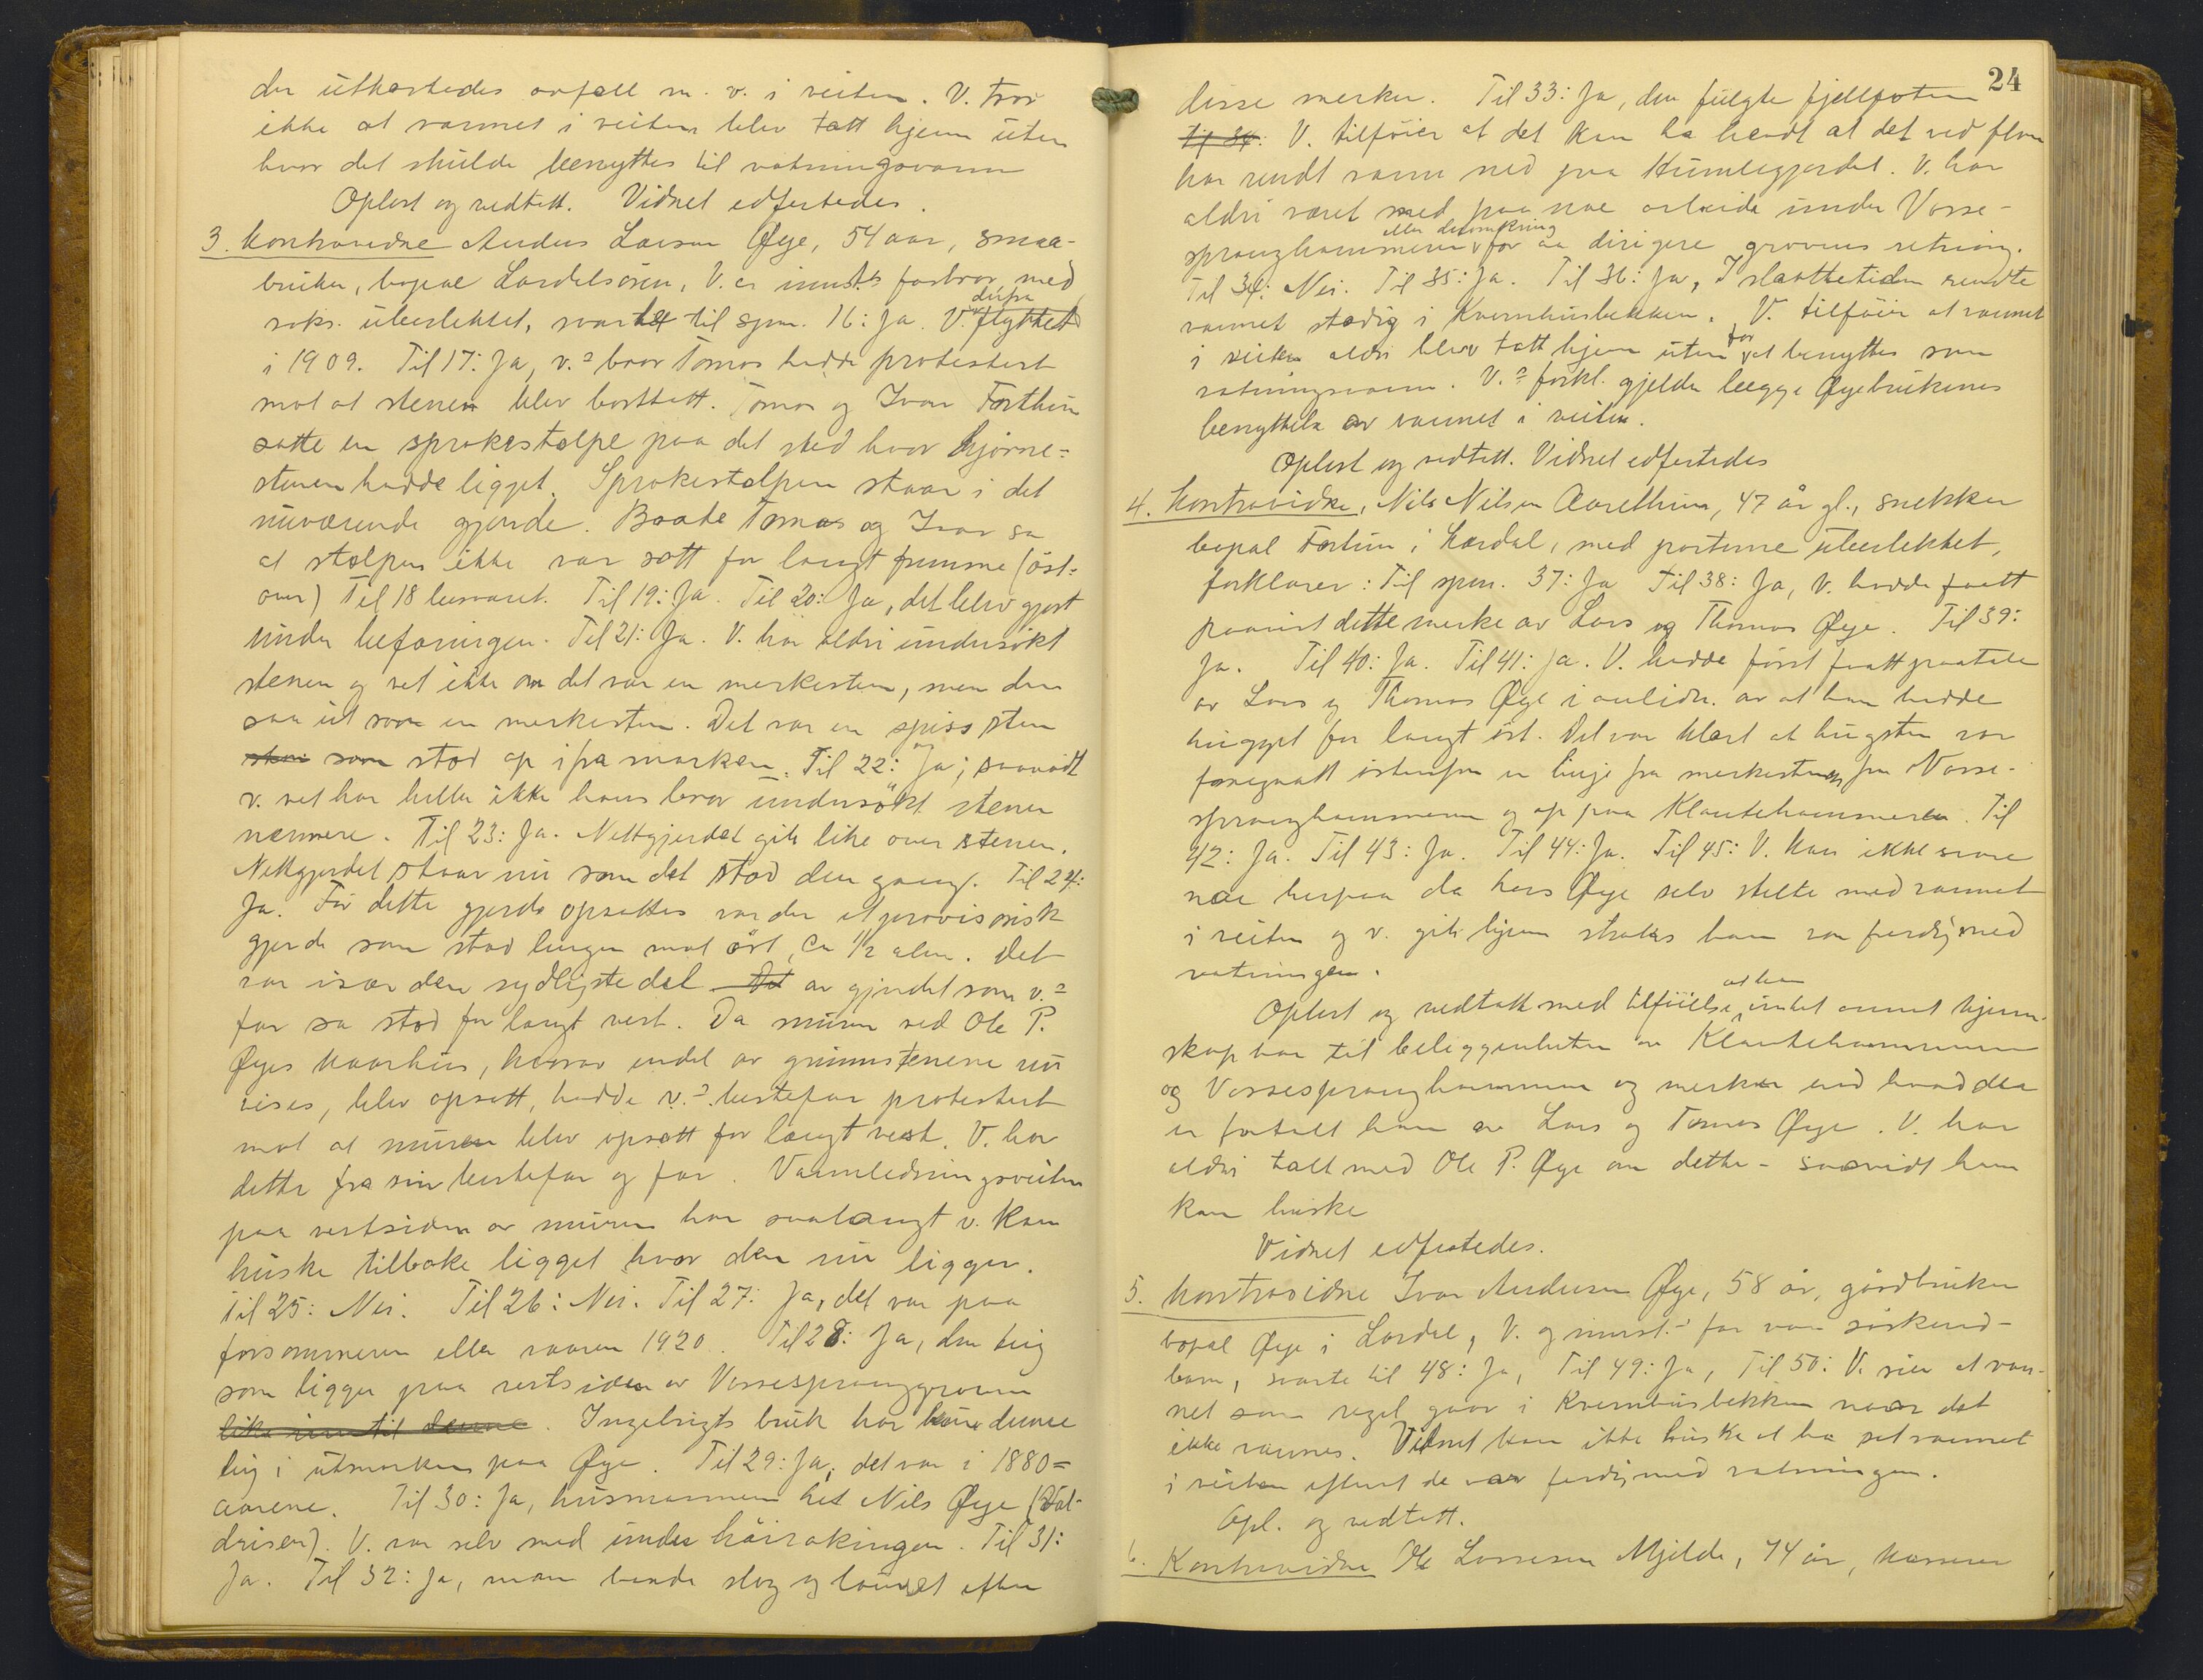 der utkastedes avfall m. v. i veiten. V. tror
ikke at vannet i veiten blev tatt hjem uten
hvor det skulde benyttes til vatningsvann
Oplest og vedtatt. Vidnet edfestedes.
3. Kontravidne Anders Larsen Øye, 54 aar, smaa-
bruker, bopæl Lærdalsøren, V. er farbror med
saks. ubeslektet, svarte til spm. 16: Ja. V. flyttet derfra
i 1909. Til 17: Ja, v.s bror Tomas hadde protestert
mot at stenen blev borttatt. Tomas og Ivar Forthun
satte en sprakestolpe paa det sted hvor hjørne-
stenen hadde ligget. Sprakestolpen staar i det
nuværende gjerde. Baade Tomas og Ivar sa
at stolpen ikke var satt for langt fremme (øst-
over) Til 18 besvaret. Til 19: Ja. Til 20: Ja, det blev gjort
under befaringen. Til 21: Ja. V. har aldri undersøkt
stenen og vet ikke om det var en merkesten, men den
saa ut som en merkesten. Det var en spiss sten
sten som stod op ifra marken. Til 22: Ja, og saavidt
v. vet har heller ikke hans bror undersøkt stenen
nærmere. Til 23: Ja. Nettgjerdet gik like over stenen.
Nettgjerdet staar nu som det stod den gang. Til 24:
Ja. Før dette gjerde opsattes var der et provisorisk
gjerde som stod lenger mot øst, ca 1/2 alen. Det
var især den sydligste del Det av gjerdet som v.s
far sa stod for langt vest. Da muren ved Ole P.
Øyes kaarhus, hvorav endel av grunnstenene nu
vises, blev opsatt, hadde v.s bestefar protestert
mot at muren blev opsatt for langt vest. V. har
dette fra sin bestefar og far. Vannledningsveiten
paa vestsiden av muren har saalangt v. kan
huske tilbake ligget hvor den nu ligger.
Til 25: Nei. Til 26: Nei. Til 27: Ja, det var paa
forsommeren eller vaaren 1920. Til 28: Ja, den teig
som ligger paa vestsiden av Vossespranggroven
like inntil denne. Ingebrigts bruk har kun denne
teig i utmarken paa Øye. Til 29: Ja, det var i 1880-
aarene. Til 30: Ja, husmannen het Nils Øye (Val-
drisen). V. var selv med under høirakingen. Til 31:
Ja. Til 32: Ja, man baade slog og lauvet efter
24
disse merker. Til 33: Ja, den fulgte fjellfoten
Til 34: V. tilføier at det kan ha hendt at det ved flom
har rendt vann ned paa Humlegjerdet. V. har
aldri været med paa noe arbeide under Vosse-
spranghammeren eller deromkring for aa dirigere grovens retning.
Til 34: Nei. Til 35: Ja. Til 36: Ja, I slaattetiden rendte
vannet stadig i Kvernhusbekken. V. tilføier at vannet
i veiten aldri blev tatt hjem uten for at benyttes som
vatningsvann. V.s forkl. gjelder begge Øyebrukenes
benyttelse av vannet i veiten.
Oplest og vedtatt. Vidnet edfestedes
4. Kontravidne, Nils Nilsen Aarethun, 47 år gl., snekker
bopæl Fortun i Lærdal, med parterne ubeslektet,
forklarer: Til spm. 37: Ja Til 38: Ja, V. hadde faatt
paavist dette merke av Lars og Thomas Øye. Til 39:
Ja. Til 40: Ja. Til 41: Ja. V. hadde først faatt paatale
av Lars og Thomas Øye i anledn. av at han hadde
hugget for langt øst. Det var klart at hugsten var
foregaatt østenfor en linje fra merkestenen fra Vosse-
spranghammeren og op paa Klautehammeren. Til
42: Ja. Til 43: Ja. Til 44: Ja. Til 45: V. kan ikke svare
noe herpaa da Lars Øye selv stelte med vannet
i veiten og v. gik hjem straks han var ferdig med
vatningen.
Oplest og vedtatt med tilføielse at han intet annet kjenn-
skap har til beliggenheten av Klautehammeren
og Vossespranghammeren og merker end hvad der
er fortalt ham av Lars og Tomas Øye. V. har
aldri talt med Ole P. Øye om dette - saavidt han
kan huske
Vidnet edfestedes.
5. Kontravidne Ivar Andersen Øye, 58 år, gårdbruker
bopæl Øye i Lærdal, V. og far var søskend-
barn, svarte til 48: Ja, Til 49: Ja, Til 50: V. sier at van-
net som regel gaar i Kvernhusbekken naar det
ikke vannes. Vidnet kan ikke huske at ha set vannet
i veiten efterat de var ferdig med vatningen.
Opl. og vedtatt.
6. Kontravidne Ole Larsesen Mjelde, 74 år, kasserer